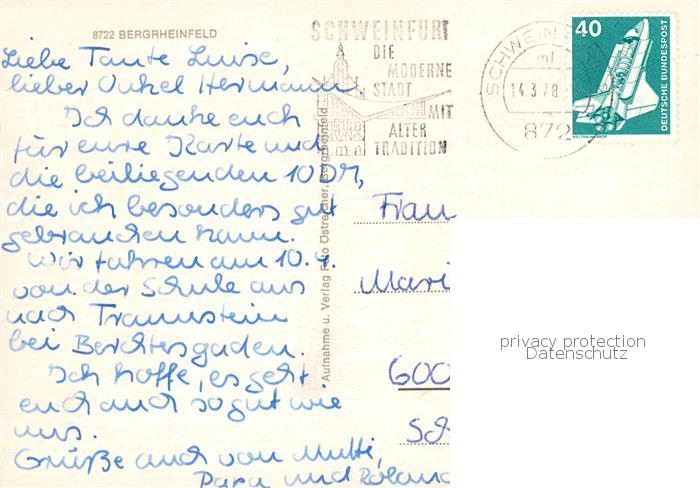 8722 BERGRHEINFELD
Liebe Tante Luise,
lieber Onkel Hermann
Ich danke euch
für eure Karte und
die beiliegenden 10 DM,
die ich besonders gut
gebrauchen kann.
Wir fahren am 10.4.
von der Schule aus
nach Traunstein
bei Berchtesgaden.
Ich hoffe, es geht
euch auch so gut wie
uns.
Grüße auch von Mutti,
Papa und Roland
Aufnahme u. Verlag Foto Östreicher, Bergrheinfeld
SCHWEINFURT
DIE
MODERNE
STADT
MIT
ALTER
TRADITION
SCHWEINF
mf
14.3.78
872
40
DEUTSCHE BUNDESPOST
WELTRAUMLABOR
Frau
Mari
600
Sch
privacy protection
Datenschutz